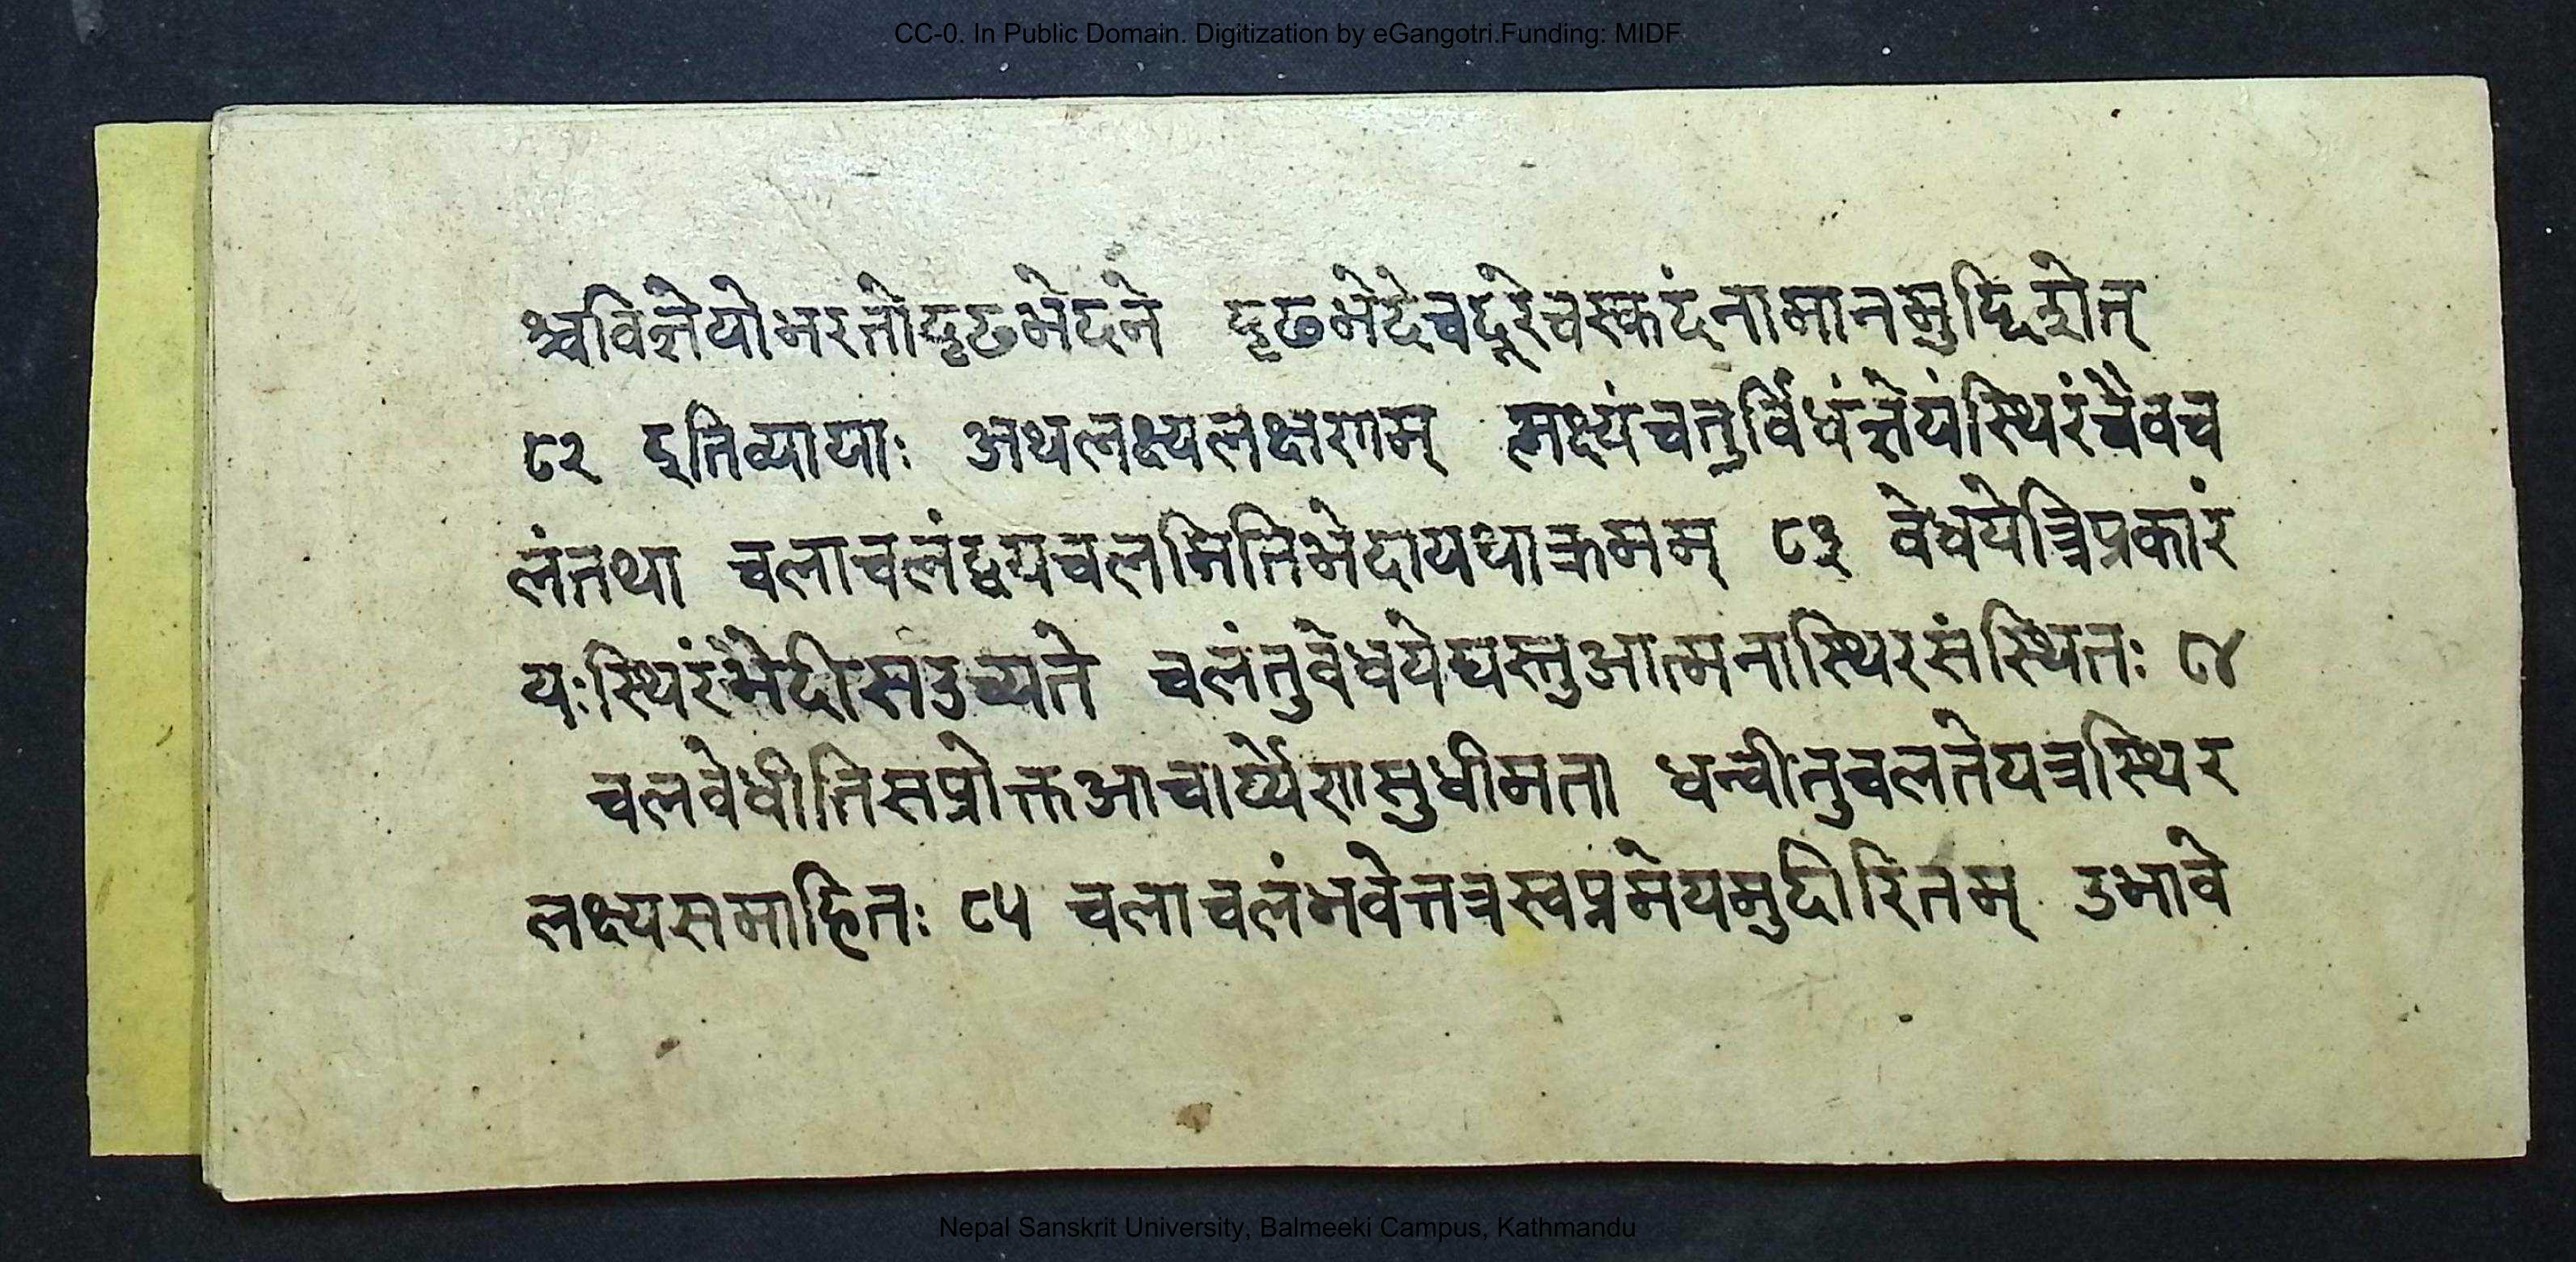 CC-0. In Public Domain. Digitization by eGangotri.Funding: MIDF
श्चविज्ञेयोभरतोदृढभेदने दृढभेदेचदूरेचस्कदंनामानमुद्दिशेत्
८२ इतिव्यायाः अथलक्ष्यलक्षणम् लक्ष्यंचतुर्विधंज्ञेयंस्थिरंचैवच
लंतथा चलाचलंद्वयचलमितिभेदायथाक्रमम् ८३ वेधयेत्रिप्रकारं
यःस्थिरंभेदीसउच्यते चलंतुवेधयेद्यस्तुआत्मनास्थिरसंस्थितः ८४
चलवेधीतिसप्रोक्तआचार्य्येणसुधीमता धन्वीतुचलतेयत्रस्थिर
लक्ष्यसमाहितः ८५ चलाचलंभवेत्तत्रस्वप्नमेयमुदीरितम् उभावे
Nepal Sanskrit University, Balmeeki Campus, Kathmandu